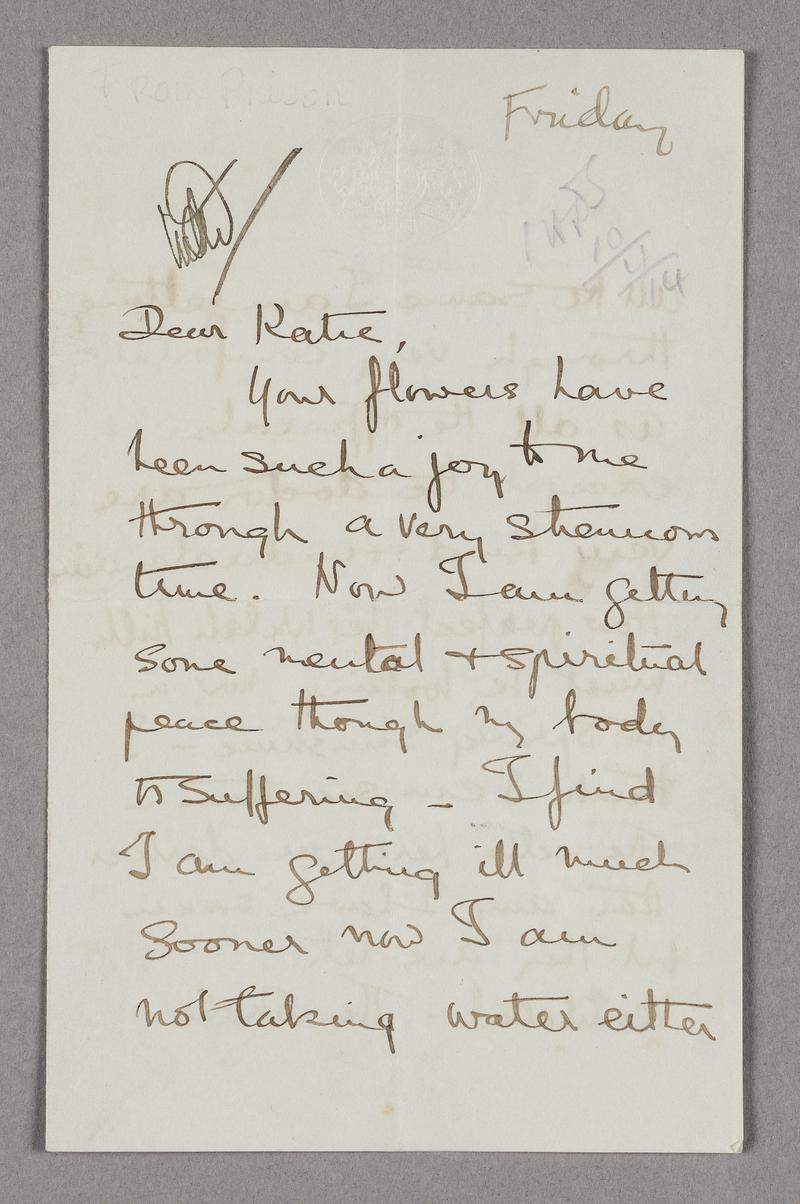 From Prison
Friday
10/4/14
Dear Katie,
Your flowers have
been such a joy to me
through a very strenuous
time. Now I am getting
some mental + spiritual
peace though my body
is suffering - I find
I am getting ill much
sooner now I am
not taking water either